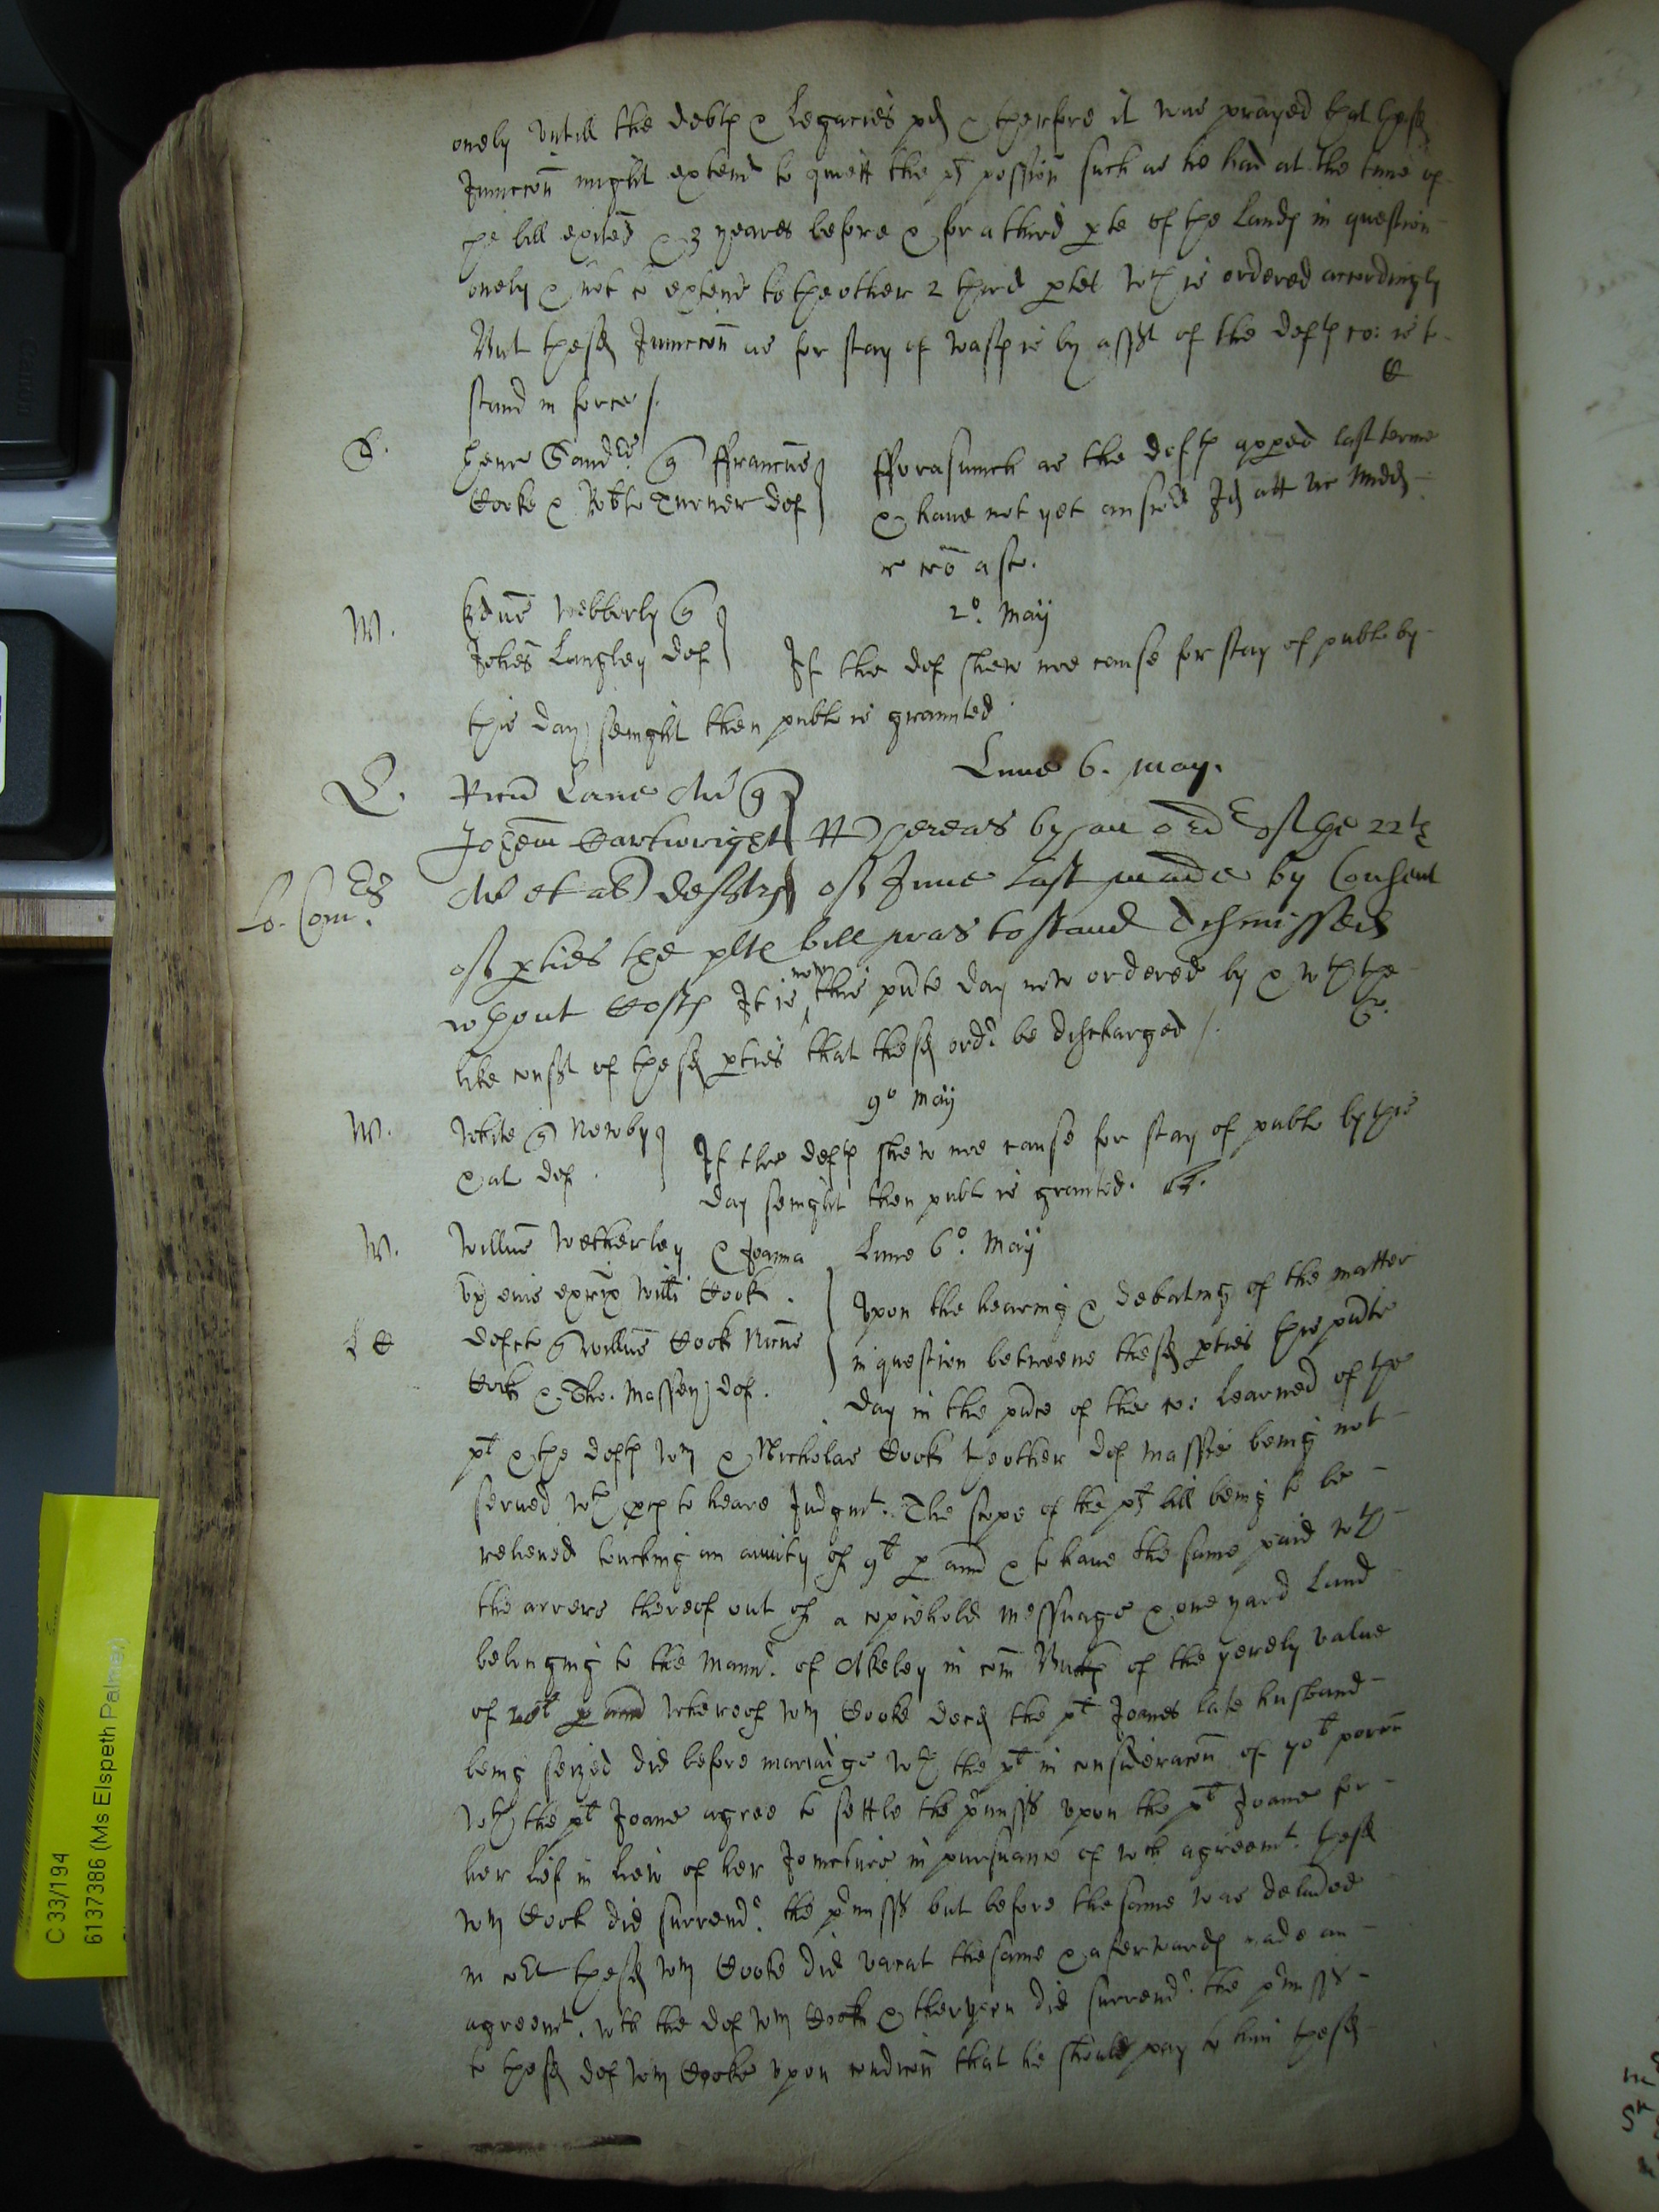 onely vntill the debts & Legacies pd & therfore it was prayed that the sd
Iniuccon might extend to quiett the plts possion such as he had at the time of
the bill exited & 3 yeares before & for a third pte of the Lands in question
onely & not to extend to the other 2 third ptes wch is ordered accordingly
But the sd Iniuccon as for stay of wast is by asst of the defts co: is to
stand in force /.
S.
Henr Sand
Cooke & Robto Turner def
fforasmuch as the defts appeed last terme
& haue not yet answed Id att vic Midd
r cro asc.
W.
Edrus Webberly
Iohes Langley def
2o. May
If the def shew noe cause for stay of publc by
this day senight then publc is graunted
L.
Ricus Lane Ar
Iohem Cartwright
Ar et al defts
Lune 6. may.
Whereas by an ord of the 22th
of Iune last made by Consent
of pties the plts bill was to stand dismissed
wthout Costs It is now this pnte day now ordered by & wth the
like const of the sd pties that the sd ordr be discharged /.
W.
White Newby
& al def.
9o May
If the defts shew noe cause for stay of publc by this
day senight then publc is granted.
W.
Willus Wetherley & Joanna
vx eius exrix Willi Cook
defcti Willus Cook Nicus
Cook & Tho. Massey def.
Lune 6o. May
Vpon the hearing & debating of the matter
in question betweene the sd pties this pnte
day in the pnce of the co: learned of the
plt & the defts Wm & Nicholas Cook the other def Massie being not
serued wth pces to heare Iudgmt. The scope of the plts bill being to be
releived touching an anuity of 9l p ann & to haue the same paid wth
the arrers thereof out of a copiehold messuage & one yard Land
belonging to the Mannr. of Akeley in com Bucks of the yerely value
of 20l p ann whereof Wm Cooke decd the plt Joanes late husband
being seized did before mariadge wth the plt in consideracon of 70l porcon
wth the plt Joane agree to settle the pmisses vpon the plt Joane for
her lif in liew of her Joincture in pursuance of wch agreemt. the sd
Wm Cook did surrendr. the pmisses but before the same was
in cort the sd Wm Cooke did vacat the same & afterwards made an
agreemt. wth the def Wm Cook & therevpon did surrendr. the pmisses
to the sd def Wm Cooke vpon condicon that he should pay to him the sd
C 33/194
6137386 (Ms Elspeth Palmer)